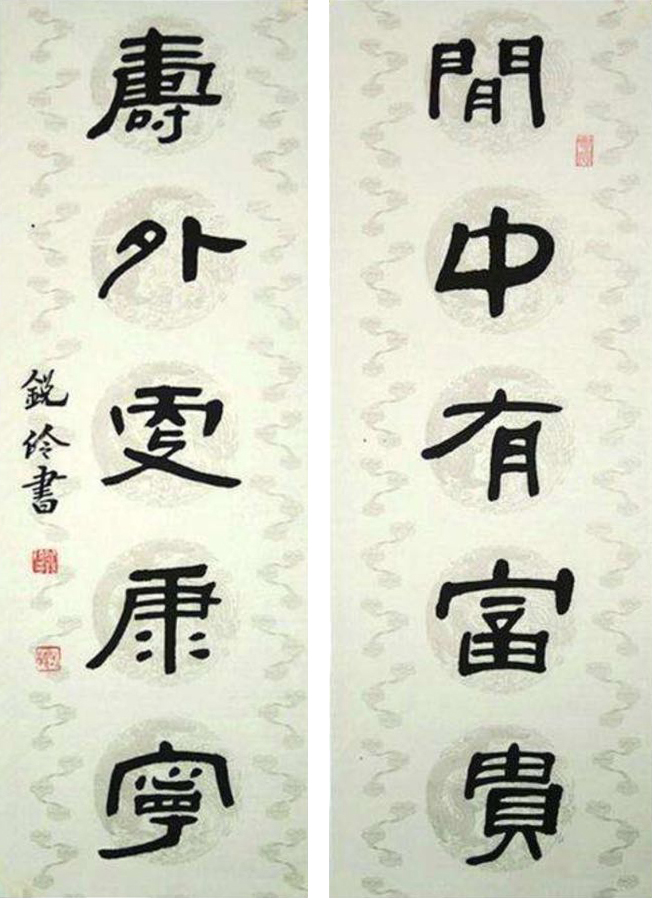 閒中有富貴
壽外更康寧
鋭伶書